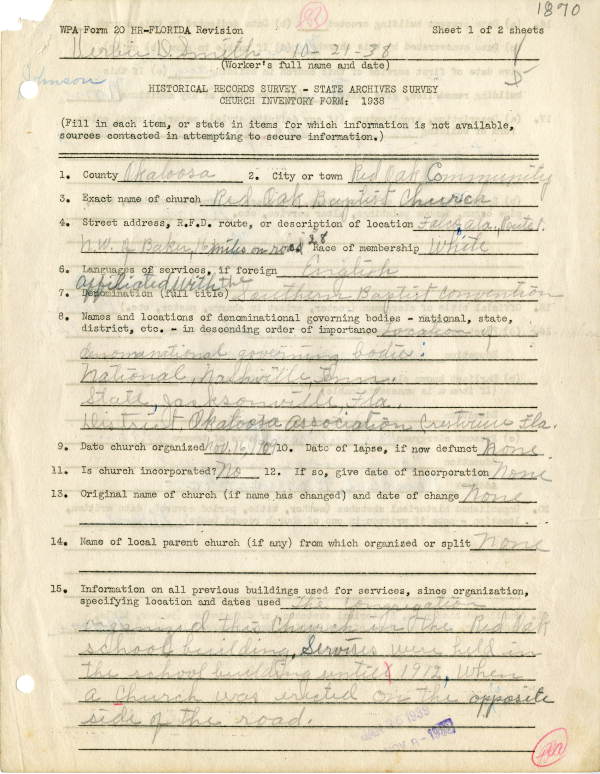 1870
WPA Form 20 HR-FLORIDA Revision Sheet 1 of 2 sheets
D. Smith 10-21-38
(Worker's full name and date)
Johnson
HISTORICAL RECORDS SURVEY - STATE ARCHIVES SURVEY
CHURCH INVENTORY FORM: 1938
(Fill in each item, or state in items for which information is not available,
sources contacted in attempting to secure information.)
1. County Okaloosa 2. City or town Red Oak Community
3. Exact name of church Red Oak Baptist Church
4. Street address, R.F.D. route, or description of location Falco, Ala, Route 1.
N.W. of Baker, 16 miles on road 28 Race of membership White
6. Languages of services, if foreign English
affiliated with the
7. Denomination (full title) Southern Baptist Convention
8. Names and locations of denominational governing bodies - national, state,
district, etc. - in descending order of importance Location of
denomanational governing bodies:
National, Nashville, Tenn.
State, Jacksonville, Fla.
District, Okaloosa Association Crestview Fla.
9. Date church organized Nov. 16, 10. Date of lapse, if now defunct None
11. Is church incorporated? No 12. If so, give date of incorporation None
13. Original name of church (if name has changed) and date of change None
14. Name of local parent church (if any) from which organized or split None
15. Information on all previous buildings used for services, since organization,
specifying location and dates used The Congregation
organized this Church in the Red Oak
school building, Services were held in
the school building until 1912, When
a Church was erected on the opposite
side of the road.